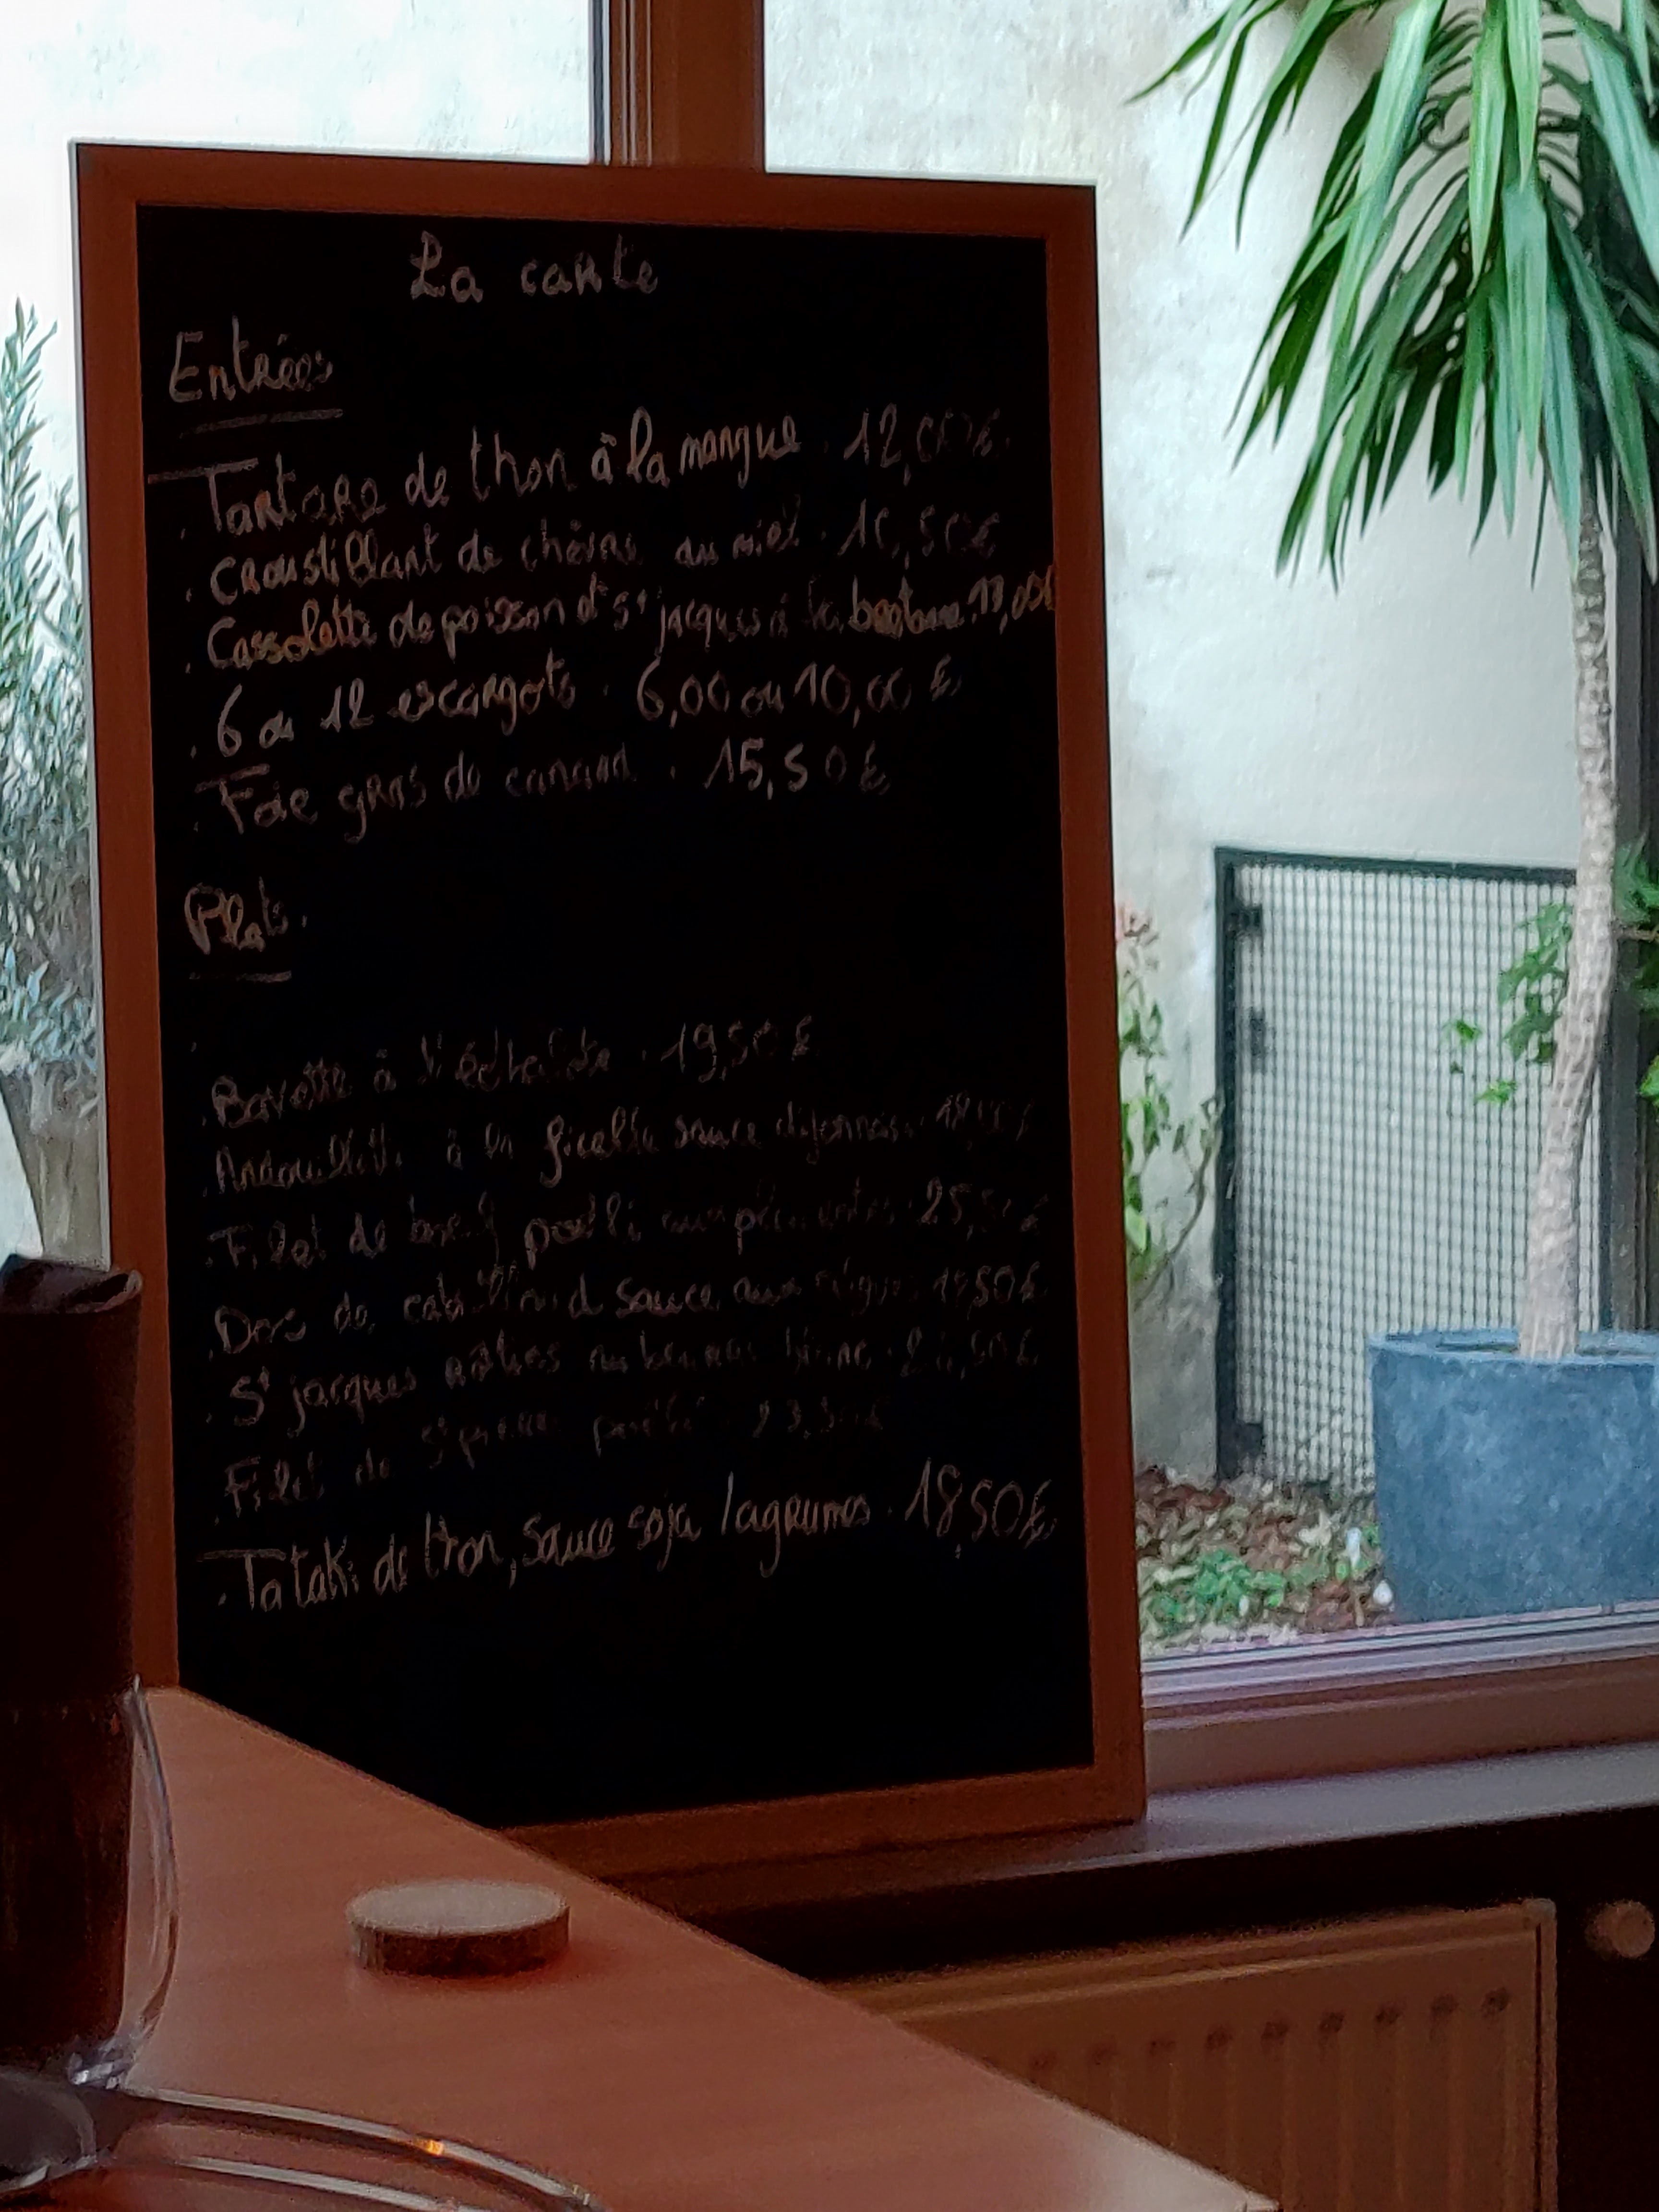 La carte
Entrées
. Tartare de thon à la mangue . 12,00 €
. Croustillant de chèvre au miel . 10,50 €
. Cassolette de poisson et St jacques à la bretonne.
. 6 ou 12 escargots . 6,00 ou 10,00 €
. Foie gras de canard . 15,50 €
Plats.
. Bavette à l'échalote . 19,50 €
. Andouillette à la ficelle sauce dijonnaise.
. Filet de bœuf poêlé
. Dos de cabillaud sauce aux
. St jacques rôties au beurre
. Filet de St pierre poêlé
. Tataki de thon, sauce soja / agrumes . 18,50 €